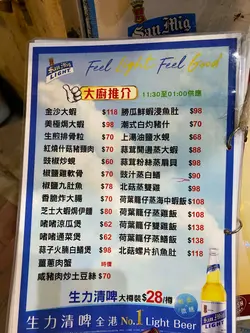 San Mig
SAN MIG
LIGHT
Feel Light Feel Good
大廚推介 11:30至01:00供應
金沙大蝦 $118
美極焗大蝦 $98
生煎排骨粒 $70
紅燒什菇豬腩肉 $70
豉椒炒蜆 $60
椒鹽雞軟骨 $70
椒鹽九肚魚 $78
香脆炸大腸 $70
芝士大蝦焗伊麵 $80
啫啫涼瓜煲 $68
啫啫通菜煲 $62
蒜子火腩白鱔煲 $98
薑蔥肉蟹 時價
鹹豬肉炒土豆絲 $70
勝瓜鮮蝦浸魚肚 $98
潮式白灼豬什 $70
上湯油鹽水蜆 $68
蒜茸開邊蒸大蝦 $98
蒜茸粉絲蒸扇貝 $98
豉汁蒸白鱔
北菇蒸雙雞 $98
荷葉籠仔蒸海中蝦飯 $108
荷葉籠仔蒸雞飯 $108
荷葉籠仔蒸鱔飯 $138
荷葉籠仔蒸魚飯 $118
北菇螺片扒魚肚 $118
生力清啤 大樽裝 $28/樽
生力清啤 全港No.1 Light Beer